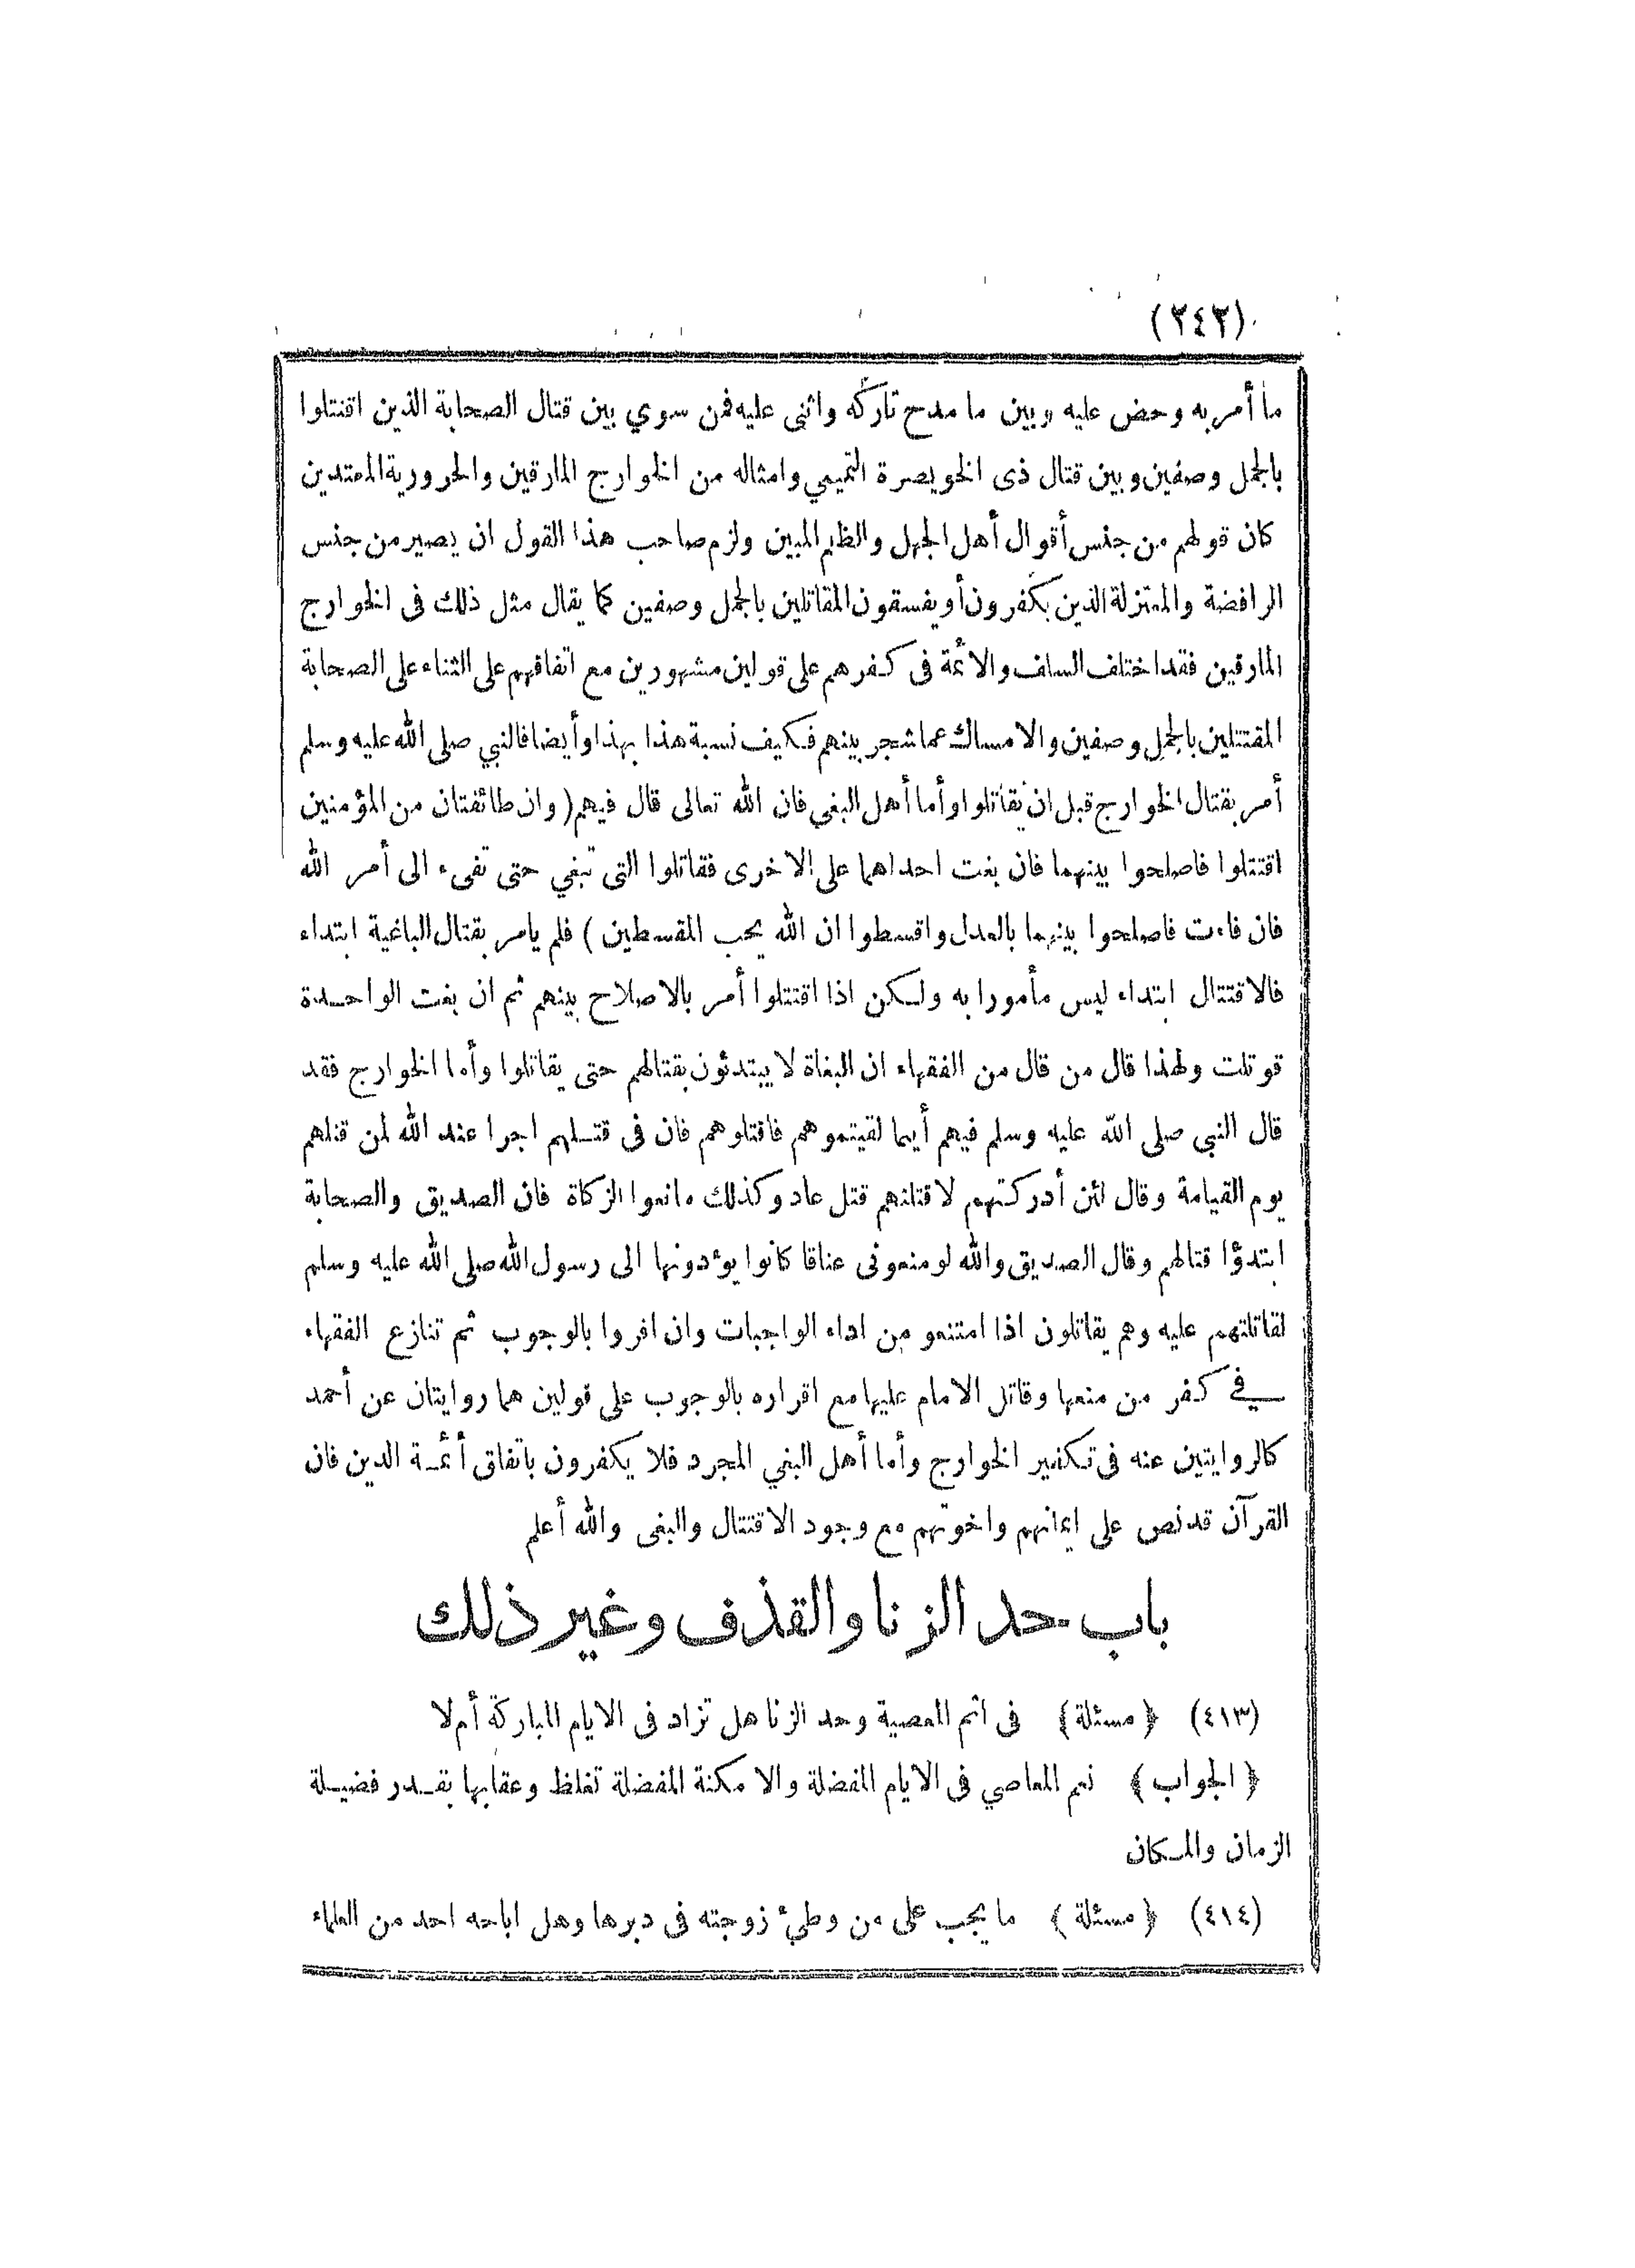 (٢٤٢)
ما أمر به وحض عليه وبين ما مدح تاركه واثنى عليه فمن سوي بين قتال الصحابة الذين اقتتلوا
بالجمل وصفين وبين قتال ذى الخويصرة التميمي وامثاله من الخوارج المارقين والحرورية المعتدين
كان قولهم من جنس أقوال أهل الجهل والظلم المبين ولزم صاحب هذا القول ان يصير من جنس
الرافضة والمعتزلة الذين يكفرون أو يفسقون المقاتلين بالجمل وصفين كما يقال مثل ذلك فى الخوارج
المارقين فقد اختلف السلف والائمة فى كفرهم على قولين مشهورين مع اتفاقهم على الثناء على الصحابة
المقتتلين بالجمل وصفين والامساك عما شجر بينهم فكيف نسبة هذا بهذا وأيضا فالنبي صلى الله عليه وسلم
أمر بقتال الخوارج قبل ان يقاتلوا وأما أهل البغي فان الله تعالى قال فيهم (وان طائفتان من المؤمنين
اقتتلوا فاصلحوا بينهما فان بغت احداهما على الاخرى فقاتلوا التى تبغي حتى تفىء الى أمر الله
فان فاءت فاصلحوا بينهما بالعدل واقسطوا ان الله يحب المقسطين) فلم يامر بقتال الباغية ابتداء
فالاقتتال ابتداء ليس مأمورا به ولكن اذا اقتتلوا أمر بالاصلاح بينهم ثم ان بغت الواحدة
قوتلت ولهذا قال من قال من الفقهاء ان البغاة لا يبتدئون بقتالهم حتى يقاتلوا وأما الخوارج فقد
قال النبي صلى الله عليه وسلم فيهم أيما لقيتموهم فاقتلوهم فان فى قتلهم اجرا عند الله لمن قتلهم
يوم القيامة وقال لئن أدركتهم لاقتلنهم قتل عاد وكذلك مانعوا الزكاة فان الصديق والصحابة
ابتدؤا قتالهم وقال الصديق والله لو منعونى عناقا كانوا يؤدونها الى رسول الله صلى الله عليه وسلم
لقاتلتهم عليه وهم يقاتلون اذا امتنعو من اداء الواجبات وان اقروا بالوجوب ثم تنازع الفقهاء
في كفر من منعها وقاتل الامام عليها مع اقراره بالوجوب على قولين هما روايتان عن أحمد
كالروايتين عنه فى تكفير الخوارج وأما أهل البغي المجرد فلا يكفرون باتفاق أئمة الدين فان
القرآن قد نص على ايمانهم واخوتهم مع وجود الاقتتال والبغى والله أعلم
باب حد الزنا والقذف وغير ذلك
(٤١٣) ﴿مسئلة﴾ فى اثم المعصية وحد الزنا هل تزاد فى الايام المباركة أم لا
﴿الجواب﴾ نعم المعاصي فى الايام المفضلة والامكنة المفضلة تغلظ وعقابها بقدر فضيلة
الزمان والمكان
(٤١٤) ﴿مسئلة﴾ ما يجب على من وطئ زوجته فى دبرها وهل اباحه احد من العلماء